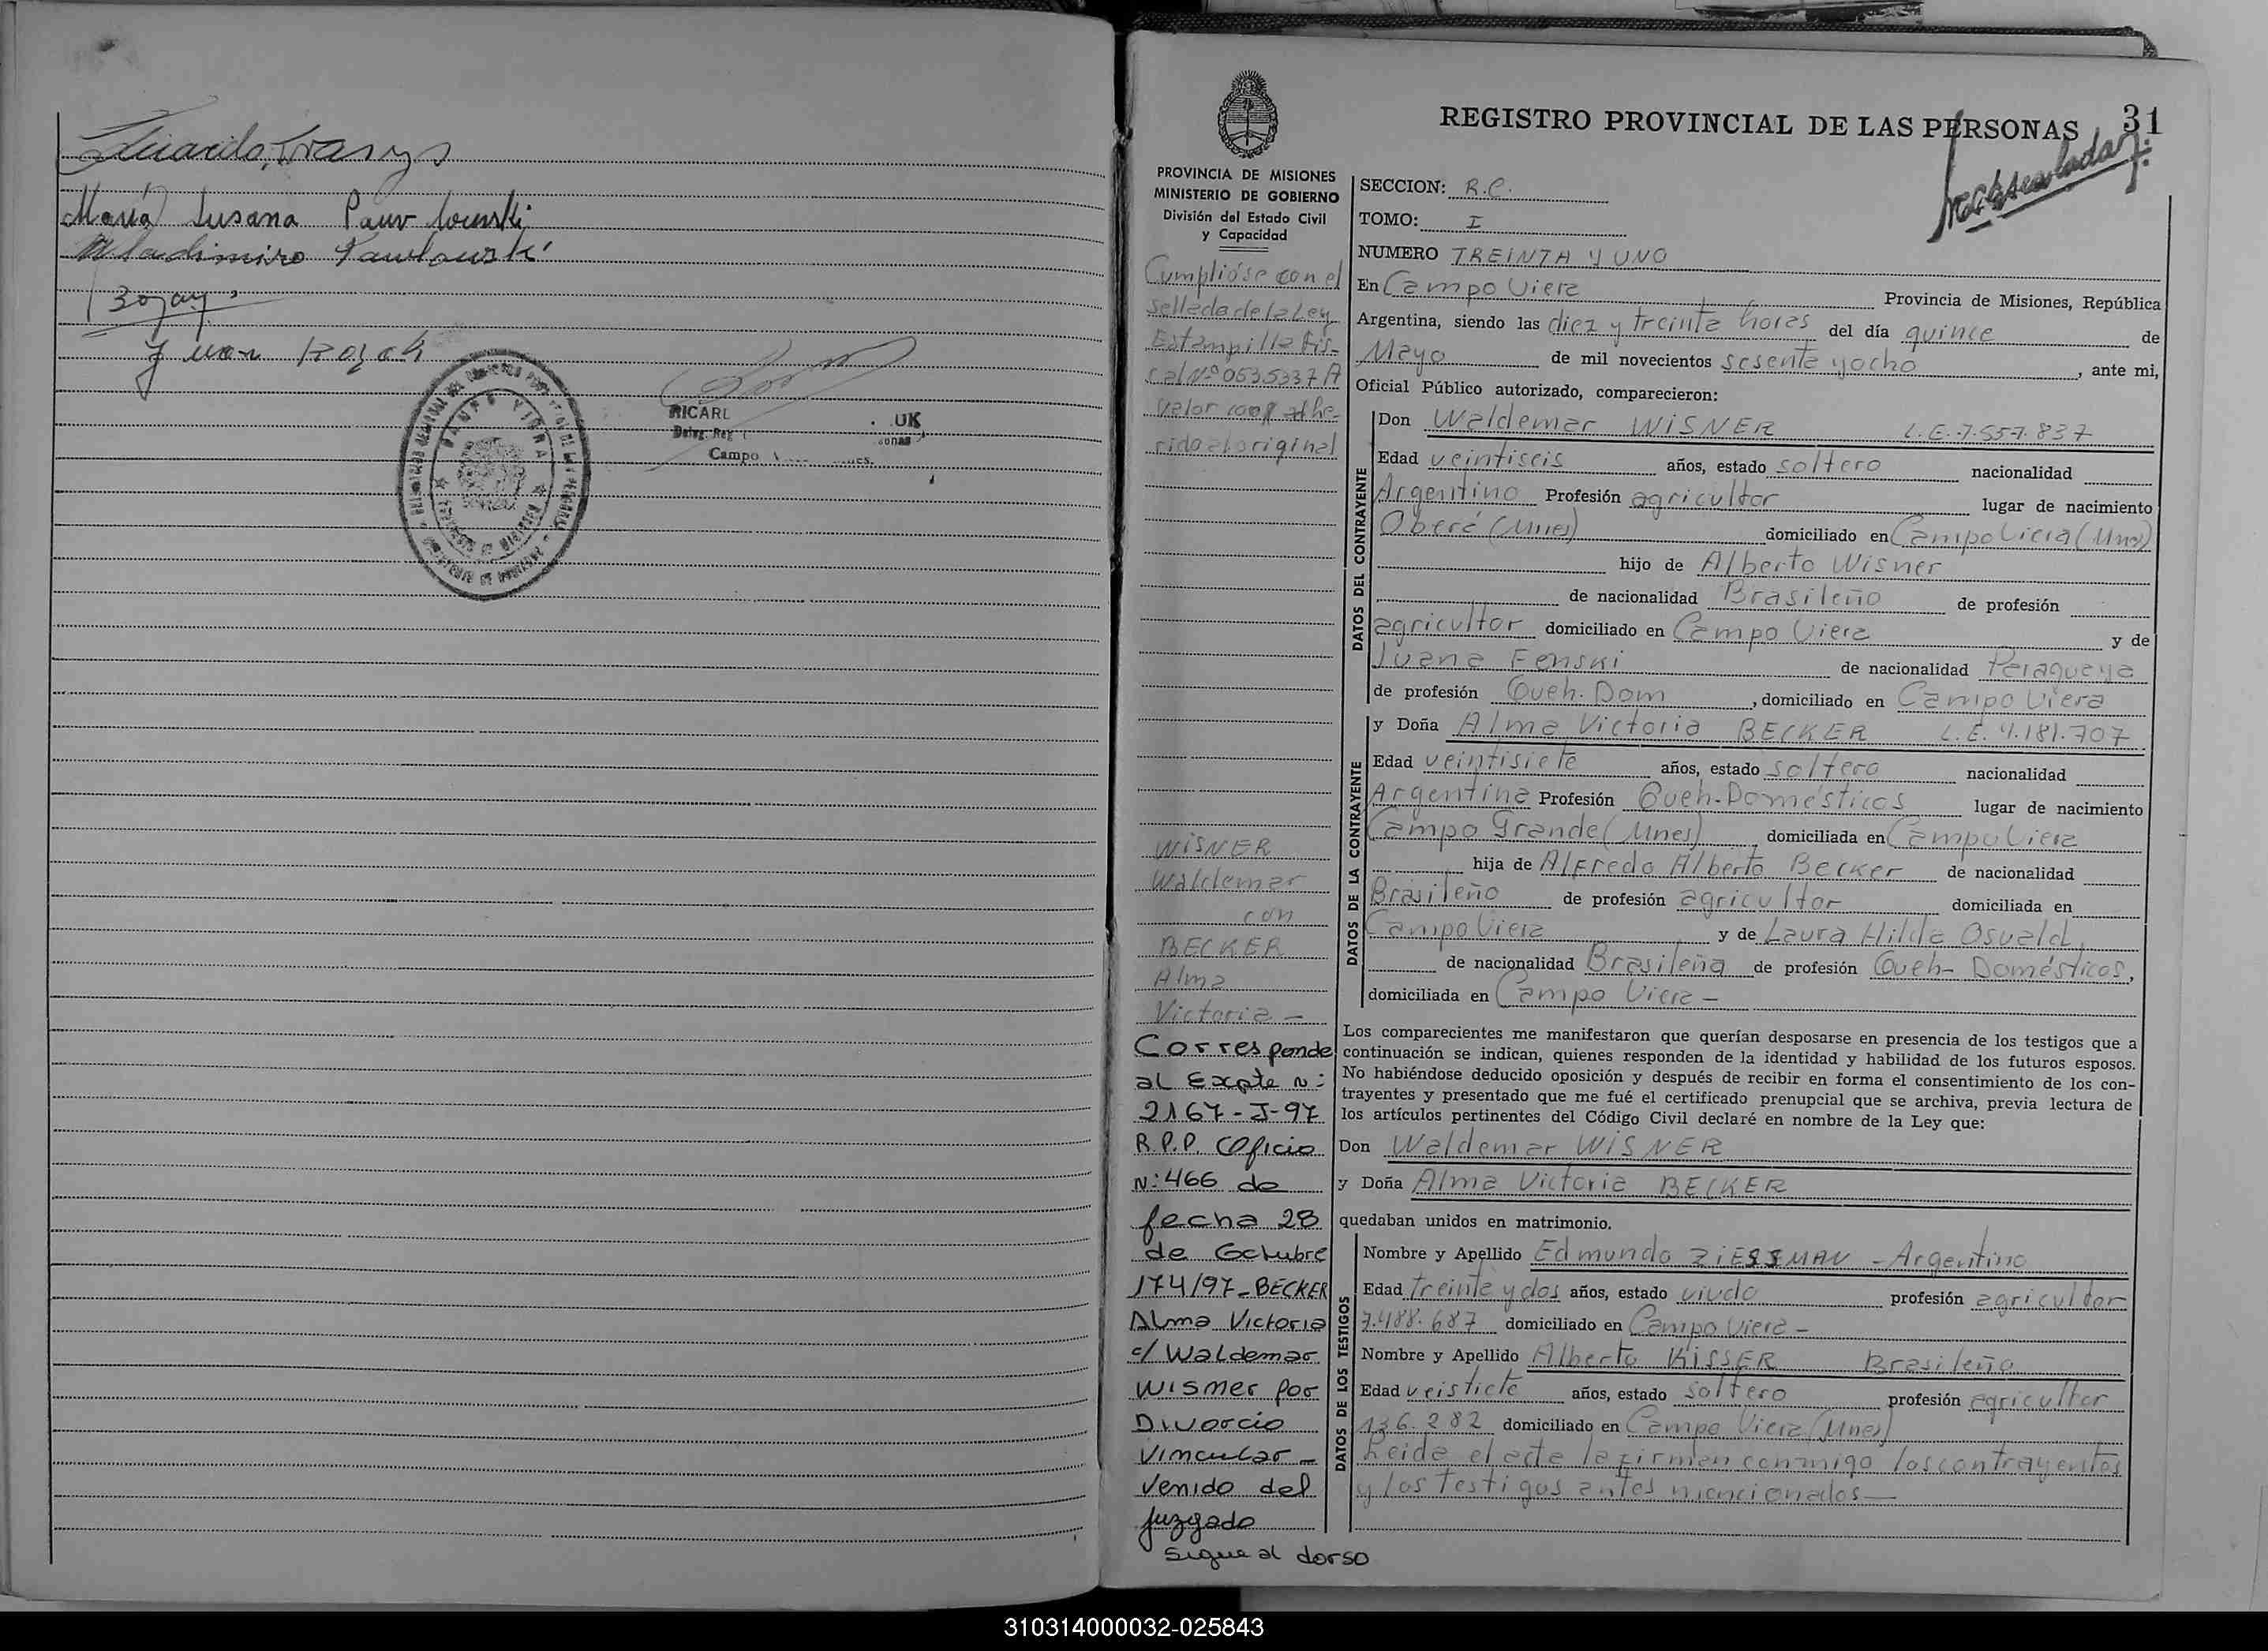 Eduardo
María Susana Pawlowski
Wladimiro Pawlowski
Juan
RICARDO UK
Campo
REGISTRO PROVINCIAL DE LAS PERSONAS 31
PROVINCIA DE MISIONES
MINISTERIO DE GOBIERNO
División del Estado Civil
y Capacidad
Cumplióse con el
sellado de la Ley
Estampilla Fis-
cal Nº 0535337 A
valor 100$ adhe-
rida al original
WISNER
Waldemar
con
BECKER
Alma
Victoria -
Corresponde
al Expte N:
2167-J-97
R.P.P. Oficio
N:466 de
fecha 28
de Octubre
174/97-BECKER
Alma Victoria
c/ Waldemar
Wismer por
Divorcio
Vincular -
Venido del
juzgado
sigue al dorso
SECCION: R.C.
TOMO: I
NUMERO TREINTA Y UNO
En Campo Viera Provincia de Misiones, República
Argentina, siendo las diez y treinta horas del día quince de
Mayo de mil novecientos sesenta y ocho, ante mi,
Oficial Público autorizado, comparecieron:
DATOS DEL CONTRAYENTE
Don Waldemar WISNER L.E. 7.557.837
Edad veintiseis años, estado soltero nacionalidad
Argentino Profesión agricultor lugar de nacimiento
Oberá (Mnes) domiciliado en Campo Viera (Mnes)
hijo de Alberto Wisner
de nacionalidad Brasileño de profesión
agricultor domiciliado en Campo Viera y de
Juana Fenski de nacionalidad Paraguaya
de profesión Queh. Dom, domiciliado en Campo Viera
DATOS DE LA CONTRAYENTE
y Doña Alma Victoria BECKER L.E. 4.181.707
Edad veintisiete años, estado soltera nacionalidad
Argentina Profesión Queh-Domésticos lugar de nacimiento
Campo Grande (Mnes) domiciliada en Campo Viera
hija de Alfredo Alberto Becker de nacionalidad
Brasileño de profesión agricultor domiciliada en
Campo Viera y de Laura Hilda Osvald,
de nacionalidad Brasileña de profesión Queh- Domésticos,
domiciliada en Campo Viera -
Los comparecientes me manifestaron que querían desposarse en presencia de los testigos que a
continuación se indican, quienes responden de la identidad y habilidad de los futuros esposos.
No habiéndose deducido oposición y después de recibir en forma el consentimiento de los con-
trayentes y presentado que me fué el certificado prenupcial que se archiva, previa lectura de
los artículos pertinentes del Código Civil declaré en nombre de la Ley que:
Don Waldemar WISNER
y Doña Alma Victoria BECKER
quedaban unidos en matrimonio.
DATOS DE LOS TESTIGOS
Nombre y Apellido Edmundo ZIESSMAN - Argentino
Edad treinta y dos años, estado viudo profesión agricultor
7.488.687 domiciliado en Campo Viera -
Nombre y Apellido Alberto KISSER Brasileño
Edad veisticte años, estado soltero profesión agricultor
136.282 domiciliado en Campo Viera (Mnes)
Leida el acta la firman conmigo los contrayentes
y los testigos antes mencionados-
310314000032-025843